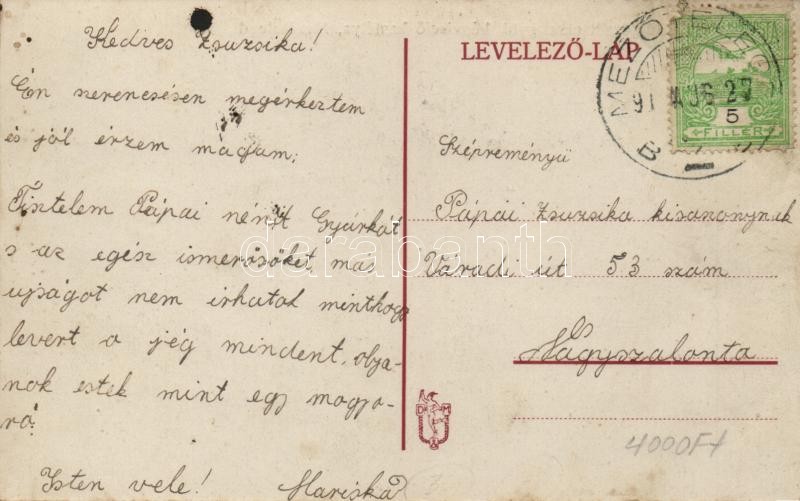 Kedves Zsuzsika!
Én szerencsésen megérkeztem
és jól érzem magam;
Tisztelem Pápai nénit Gyurkát
s az egész ismerősöket, más
ujságot nem irhatok minthogy
levert a jég mindent, olya-
nok estek mint egy mogyo-
ró.
Isten vele! Mariska
LEVELEZŐ-LAP
MEZŐTELEGD
91 AUG 27
B
5
FILLÉR
Szépreményü
Pápai Zsuzsika kisasszonynak
Váradi út 53 szám
Nagyszalonta
D M
4000Ft
darabanth